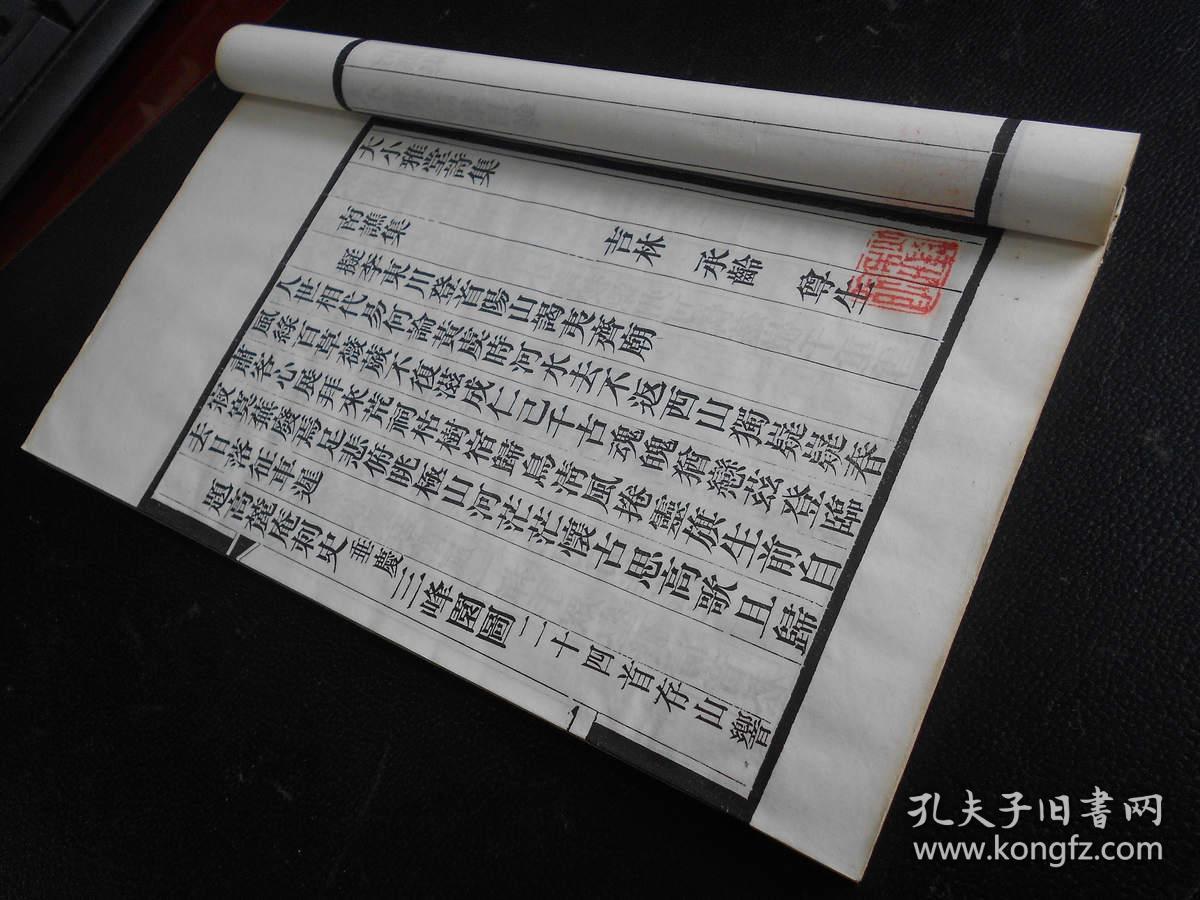 大小雅堂詩集
吉林 承齡 尊生
南譙集
擬李東川登首陽山謁夷齊廟
人世相代易何論黃虞時河水去不返西山獨嶷嶷春
風綠百草薇蕨不復滋成仁已千古魂魄猶戀茲登臨
肅客心展拜來荒祠枯樹宿歸鳥淸風捲靈旗生前自
寂寞蕪廢焉足悲俯眺極山河茫茫懷古思高歌且歸
去日落征車遲
題高麓庵刺史垂慶三峰園圖二十四首存山響
孔夫子旧書网
www.kongfz.com